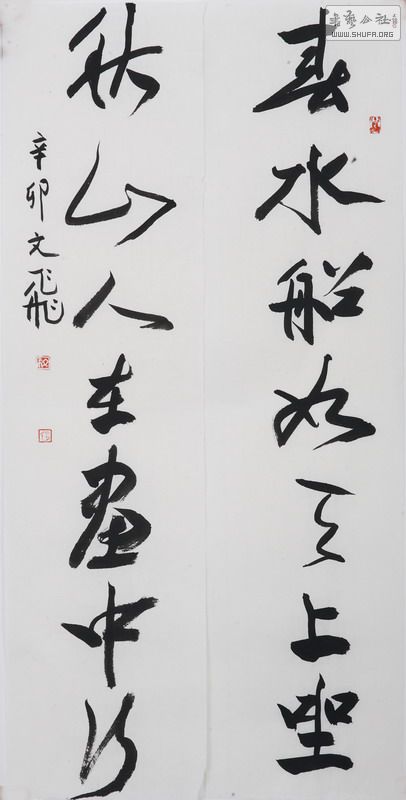 書藝公社
WWW.SHUFA.ORG
春水船如天上坐
秋山人在畫中行
辛卯文飛